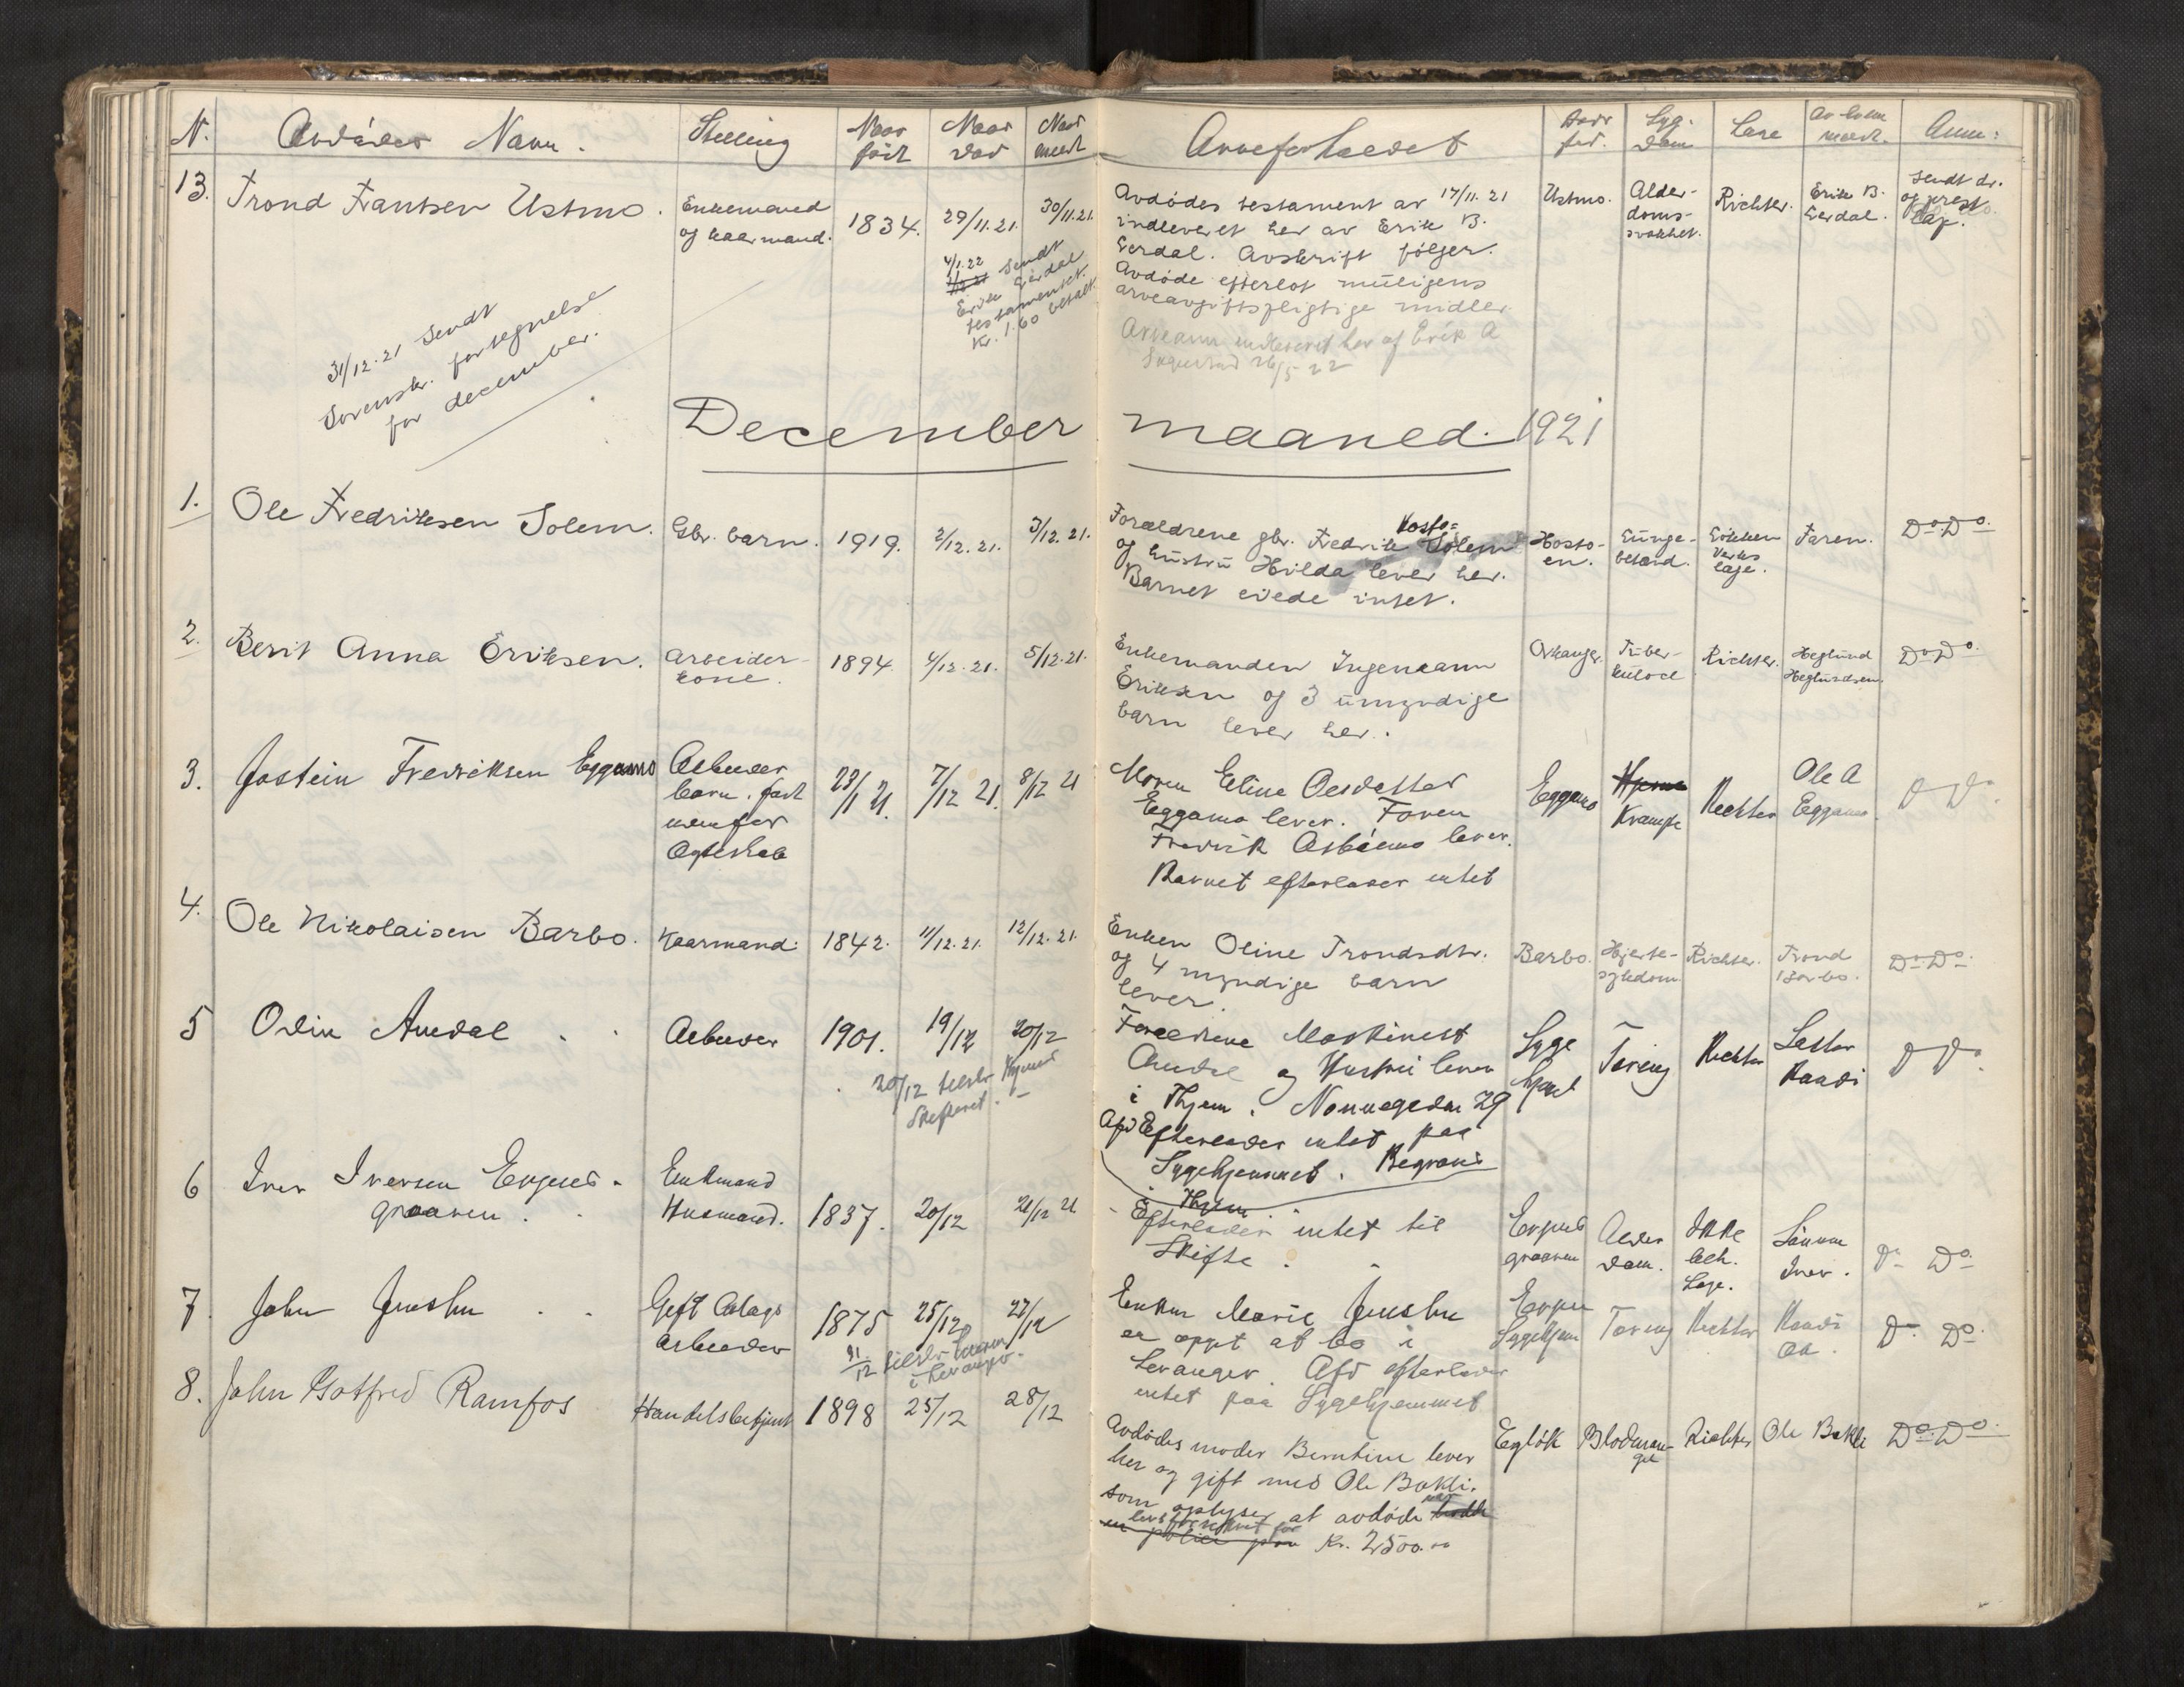 N. Avdødes Navn. Stilling Naar født Naar død Naar meldt Arveforholdet Sted Syg-dom Læge Av hvem meldt. Anm:
13. Trond Frantsen Ustmo. Enkemand og kaarmand. 1834. 29/11.21. 30/11.21.
Avdødes testament av 17/11.21
indleveret her av Erik B.
Verdal. Avskrift følger.
Avdøde efterlot muligens
arveavgiftspligtige midler
indleveret her af Erik A
26/5 22
Ustmo. Alder-doms-svakhet. Richter. Erik B. Verdal. Sendt dr. og prest
4/1.22
sendt
Erik Verdal
testamentet.
Kr. 1.60 betalt.
31/12.21 Sendt
Sorenskr. fortegnelse
for december.
December maaned. 1921
1. Ole Fredriksen Solem. Gbr. barn. 1919. 2/12.21. 3/12.21.
Forældrene gbr. Fredrik Solem
og hustru Hilda lever her.
Barnet eiede intet.
Lunge-betænd. Værks læge. Faren. Do Do.
2. Berit Anna Eriksen. Arbeider-kone. 1894. 4/12.21. 5/12.21.
Enkemanden Ingemann
Eriksen og 3 umyndige
barn lever her.
Orkanger. Tuber-kulose Richter. Heglund Heglundsen. Do Do.
3. Jostein Fredriksen Eggamo Arbeider barn. født utenfor Ægteskab 23/1 21. 7/12 21. 8/12 21
Moren Eline Olesdatter
Eggamo lever. Faren
Fredrik lever.
Barnet efterlader intet
Eggamo Krampe Richter Ole A Eggamo. D Do.
4. Ole Nikolaisen Barbo. Kaarmand. 1842. 11/12.21. 12/12.21.
Enken Oline Trondsdtr.
og 4 myndige barn
lever.
Barbo. Hjerte-sygdom. Richter. Trond Barbo. Do Do.
5 Odin Amdal . . Arbeider 1901. 19/12 20/12
20/12 tilskr
Skifteret. -
Forældrene Maskinist
Amdal og Hustru lever
i Thjem. Nonnegaden 29
Afd Efterlader intet paa
Sygehjemmet. Begraves
Thjem
Syge hjemmet Tæring Richter Søster Randi D Do
6 Iver Iversen Evjens-graaven. . Enkmand Husmand. 1837. 20/12 21/12 21
Efterlader intet til
Skifte.
Evjens graaven Alder dom. Ikke beh. Læge. Sønnen Iver. Do Do
7. John Jensen . . Gift Anlægs arbeider 1875 25/12 27/12
31/12 tilskr
i Levanger.
Enken Marie
er oppt at bo i
Levanger. Afd efterlader
intet paa Sygehjemmet
Sygehjem Tæring Richter Randi D Do
8. John Gotfred Ramfos Handelsbetjent 1898 25/12 28/12
Avdødes moder Berntine lever
her og gift med Ole Bakli.
som oplyser at avdøde var hadde
livsforsikret for
en police paa Kr. 2500.00
Egløk Blodman-gel Richter Ole Bakli Do Do.